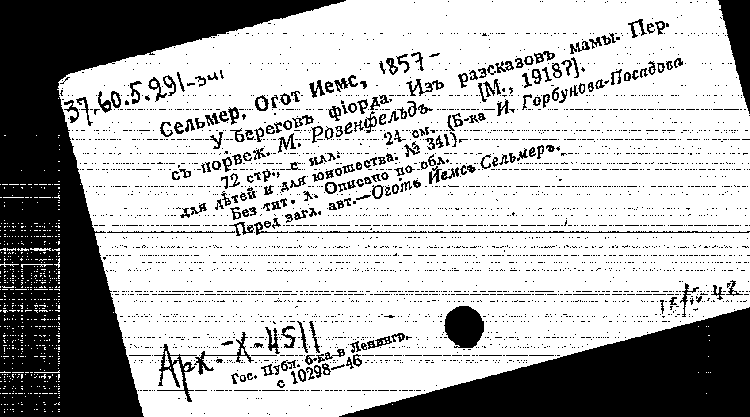 37.60.5.291-341
Сельмер, Огот Иемс, 1857-
У береговъ фіорда. Изъ разсказовъ мамы. Пер.
съ норвеж. М. Розенфельдъ. [М., 1918?].
72 стр., с илл. 24 см. (Б-ка И. Горбунова-Посадова
для дѣтей и для юношества. № 341).
Без тит. л. Описано по обл.
Перед загл. авт.—Оготъ Иемсъ Сельмеръ.
Арх.-X-4511
Гос. Публ. б-ка в Ленингр.
с 10298—46